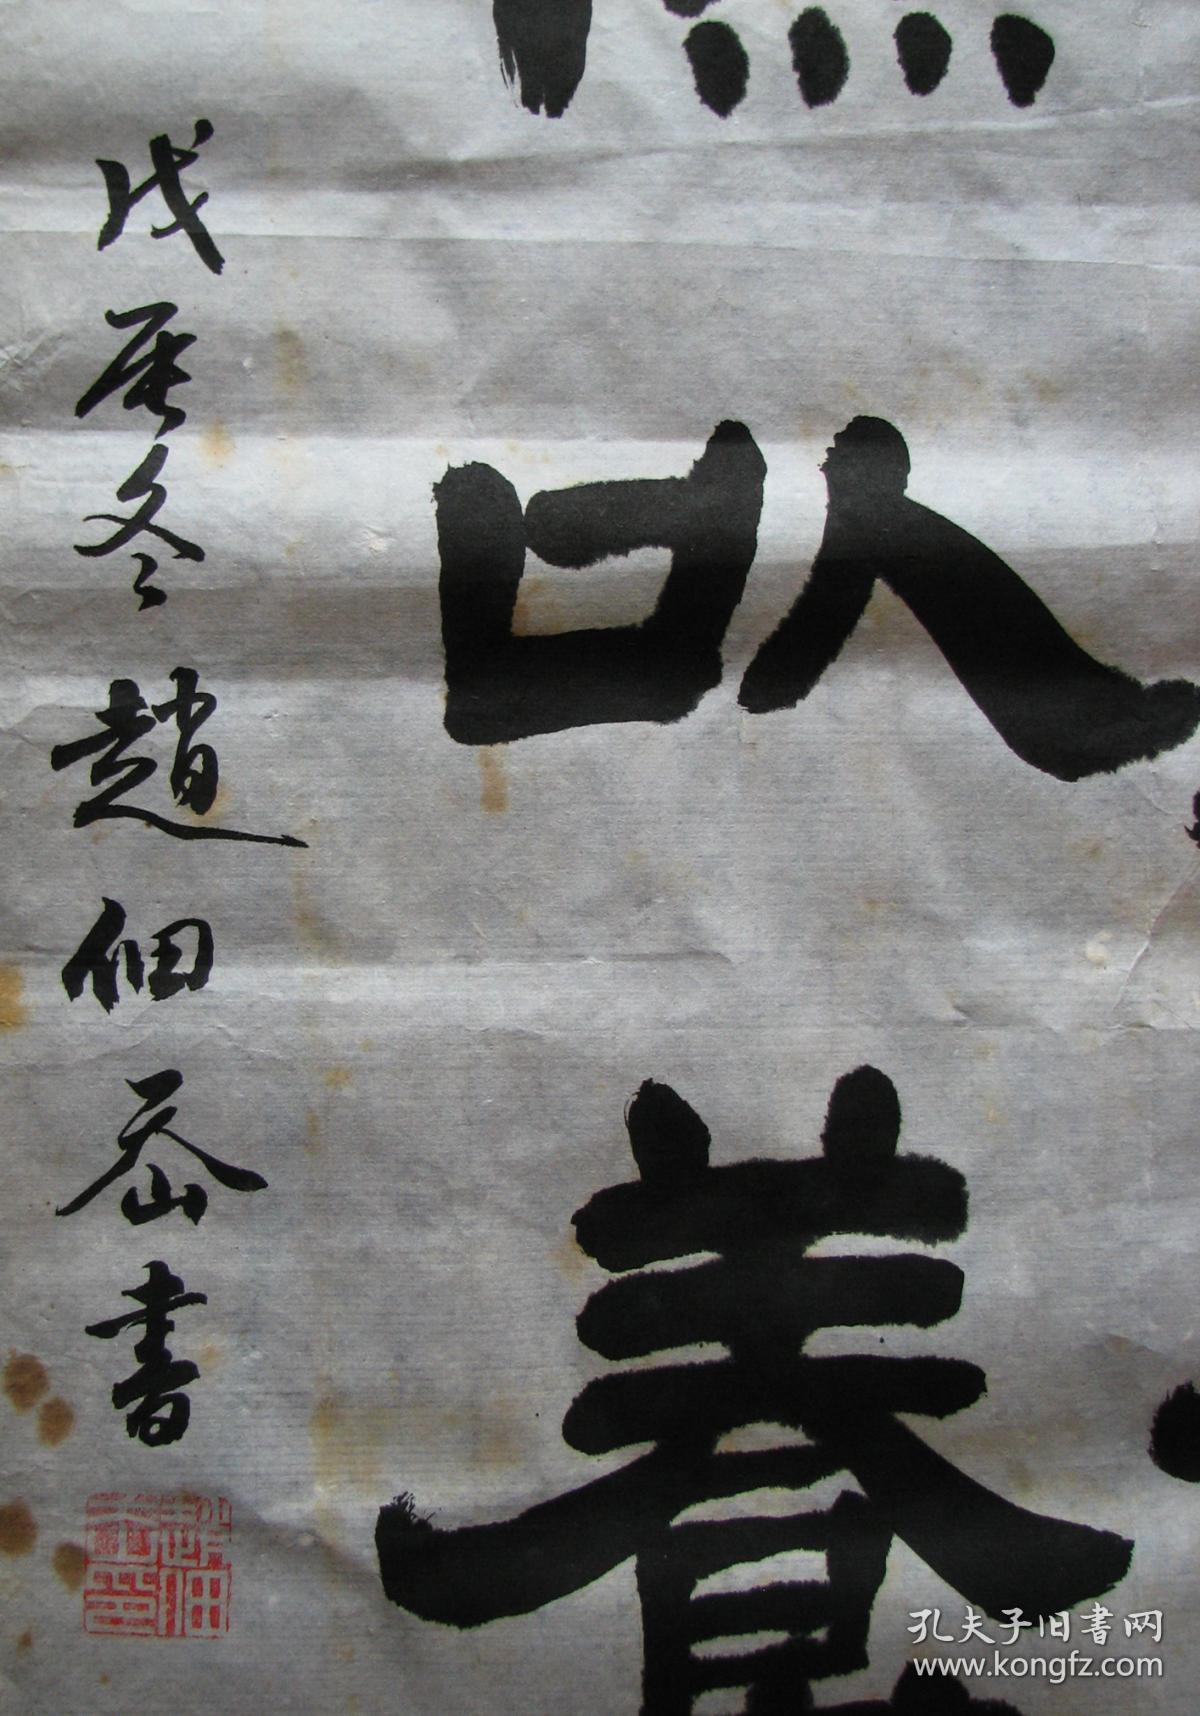 以養
戊辰冬趙佃岙書
趙佃
岙印
孔夫子旧书网
www.kongfz.com